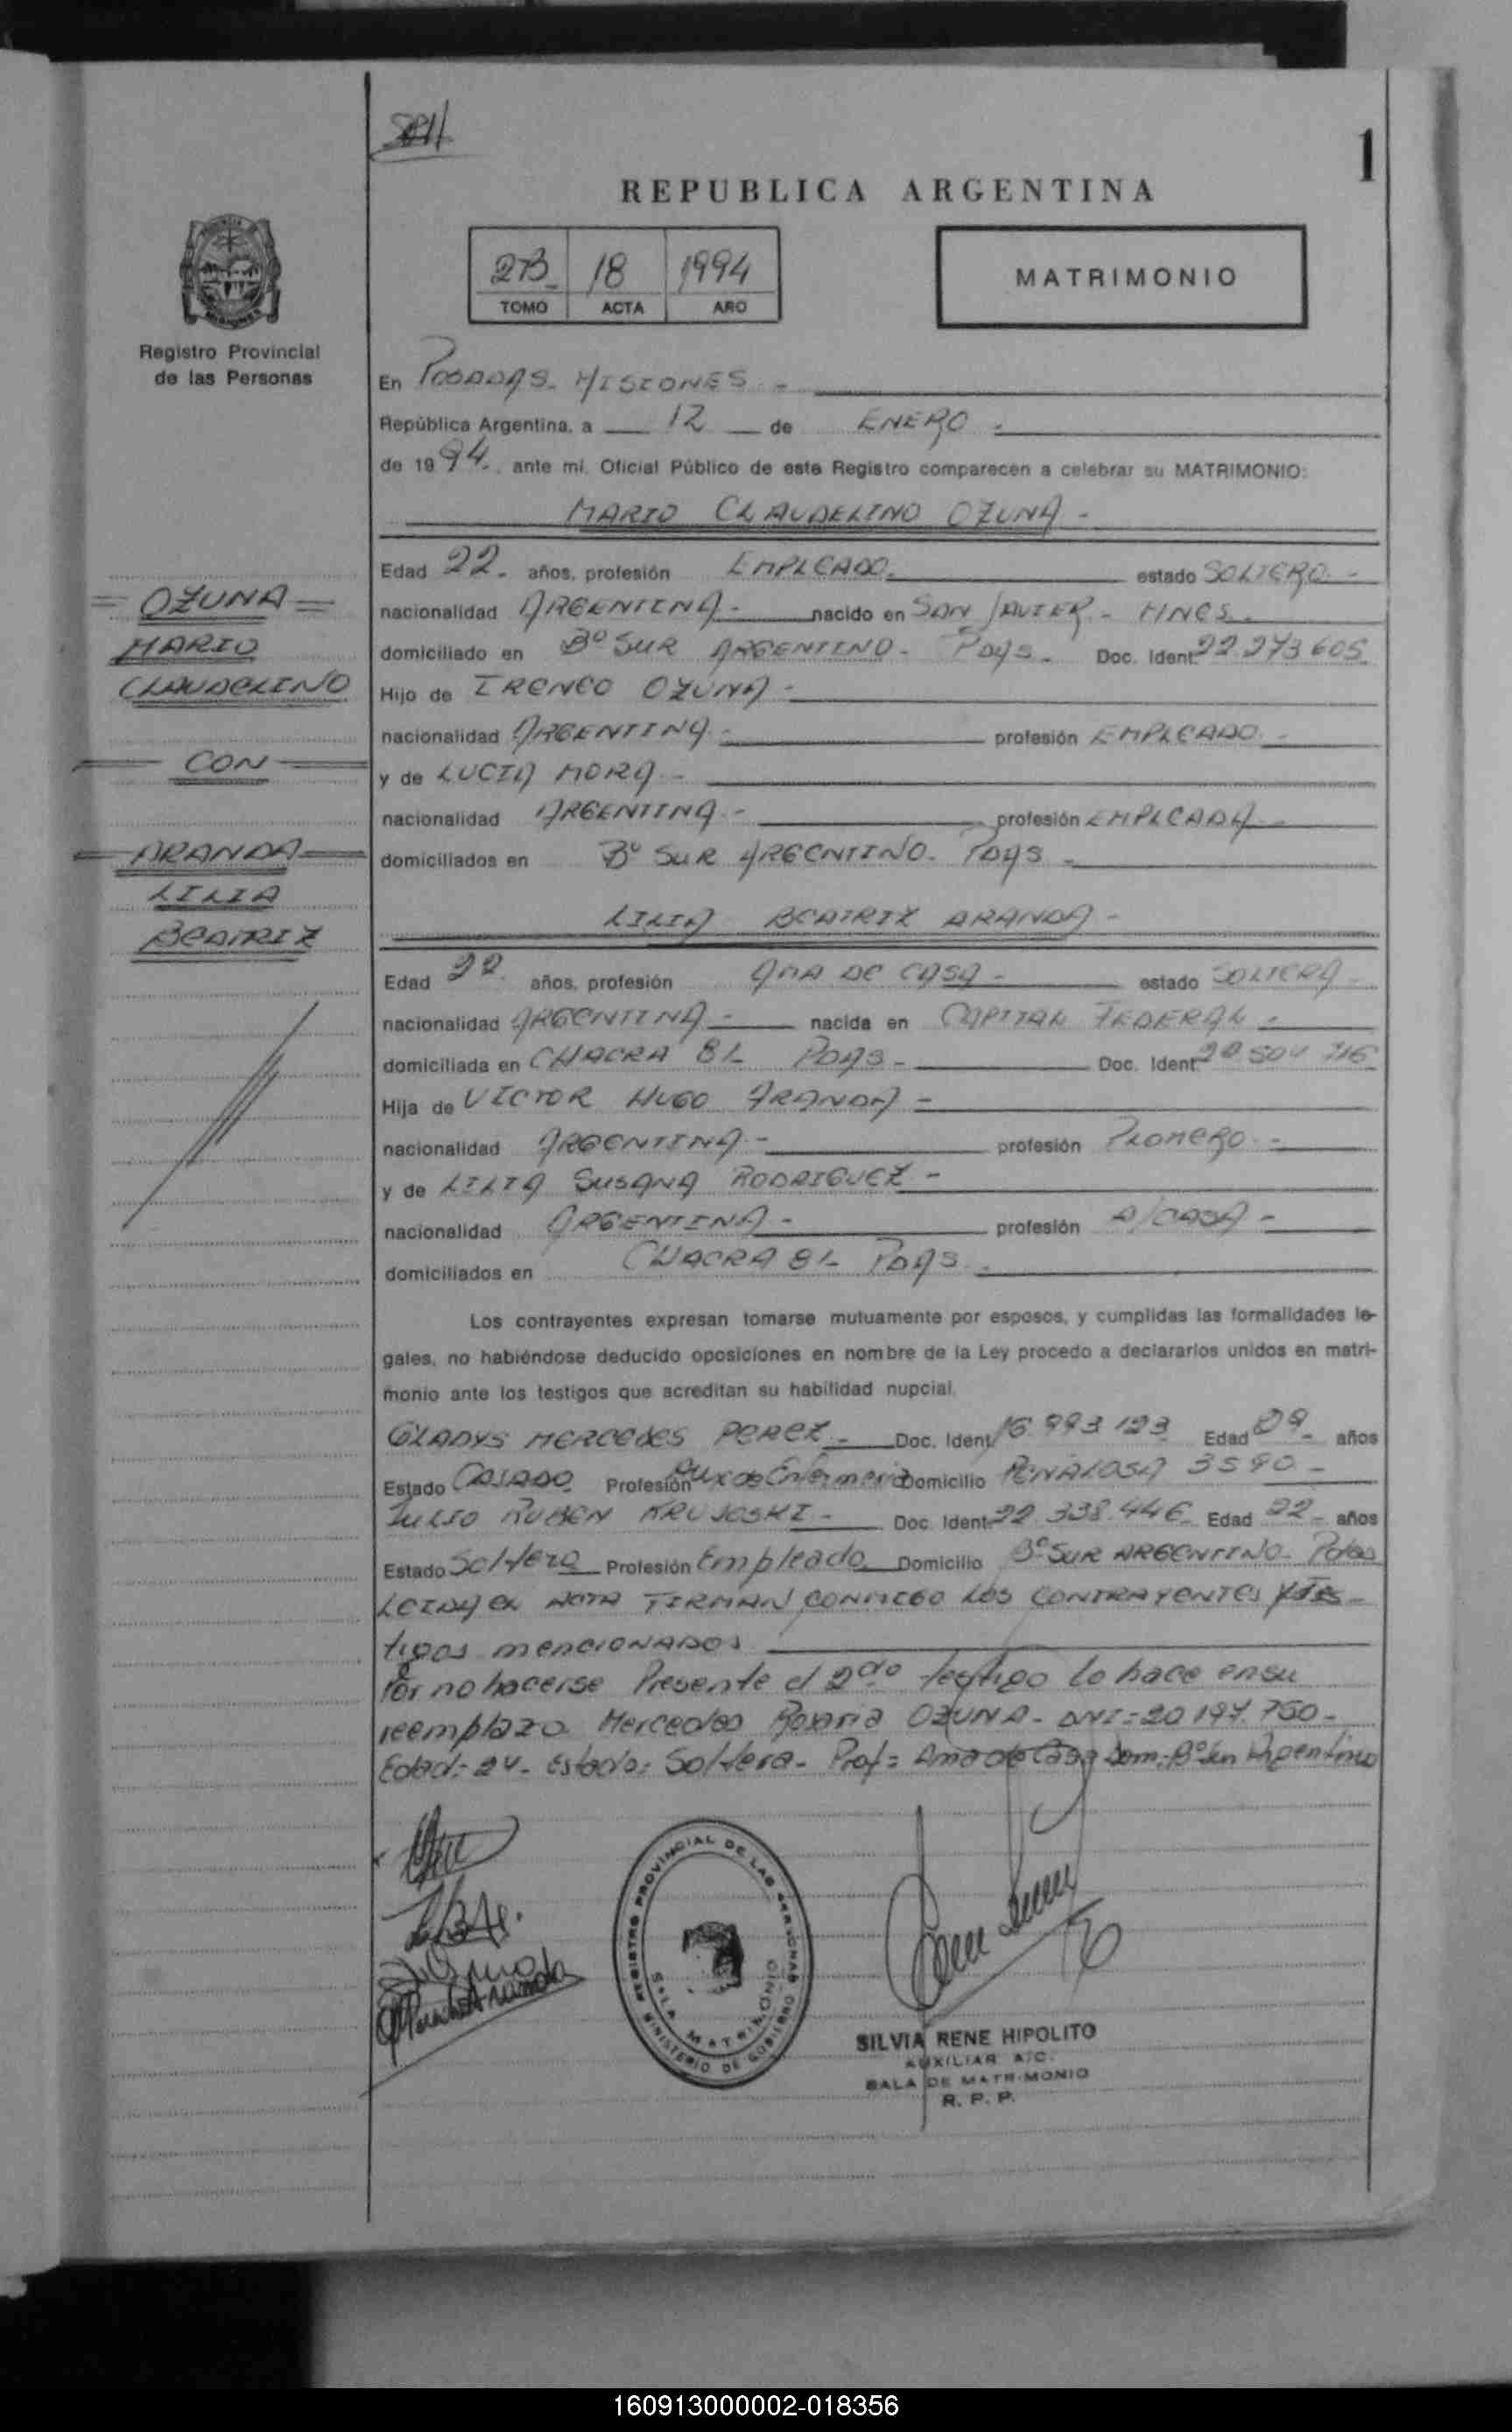 1
REPUBLICA ARGENTINA
2B 18 1994
TOMO ACTA AÑO
MATRIMONIO
Registro Provincial
de las Personas
En POSADAS - MISIONES -
República Argentina, a 12 de ENERO -
de 1994, ante mí, Oficial Público de este Registro comparecen a celebrar su MATRIMONIO:
MARIO CLAUDELINO OZUNA -
Edad 22 - años, profesión EMPLEADO. estado SOLTERO -
nacionalidad ARGENTINA - nacido en SAN JAVIER - MNES.
domiciliado en Bº SUR ARGENTINO - Pdas - Doc. Ident. 22.273.605
Hijo de IRENEO OZUNA -
nacionalidad ARGENTINA - profesión EMPLEADO -
y de LUCIA MORA -
nacionalidad ARGENTINA - profesión EMPLEADA
domiciliados en Bº SUR ARGENTINO - Pdas -
LILIA BEATRIZ ARANDA -
Edad 22 años, profesión AMA DE CASA - estado SOLTERA
nacionalidad ARGENTINA - nacida en CAPITAL FEDERAL -
domiciliada en CHACRA 81 - Pdas - Doc. Ident.
Hija de VICTOR HUGO ARANDA -
nacionalidad ARGENTINA - profesión PLOMERO -
y de LILIA SUSANA RODRIGUEZ -
nacionalidad ARGENTINA - profesión A/CASA -
domiciliados en CHACRA 81 - Pdas -
OZUNA
MARIO
CLAUDELINO
CON
ARANDA
LILIA
BEATRIZ
Los contrayentes expresan tomarse mutuamente por esposos, y cumplidas las formalidades le-
gales, no habiéndose deducido oposiciones en nombre de la Ley procedo a declararlos unidos en matri-
monio ante los testigos que acreditan su habilidad nupcial.
GLADYS MERCEDES PEREZ - Doc. Ident. 16.993.123 Edad 29 - años
Estado CASADO Profesión Aux de Enfermeria Domicilio PEÑALOSA 3590 -
JULIO RUBEN KRUJOSKI - Doc. Ident. 22.338.446 Edad 22 - años
Estado Soltero Profesión Empleado Domicilio Bº SUR ARGENTINO - Pdas
LEIDA EL ACTA FIRMAN CONMIGO LOS CONTRAYENTES Y TES-
tigos MENCIONADOS
Por no hacerse Presente el 2do testigo lo hace en su
reemplazo Mercedes OZUNA - DNI = 20.197.750 -
Edad: 24 - Estado: Soltera - Prof = Ama de Casa Dom: Bº Sur Argentino
REGISTRO PROVINCIAL DE LAS PERSONAS
MINISTERIO DE GOBIERNO
SALA MATRIMONIO
SILVIA RENE HIPOLITO
AUXILIAR A/C.
SALA DE MATRIMONIO
R. P. P.
160913000002-018356